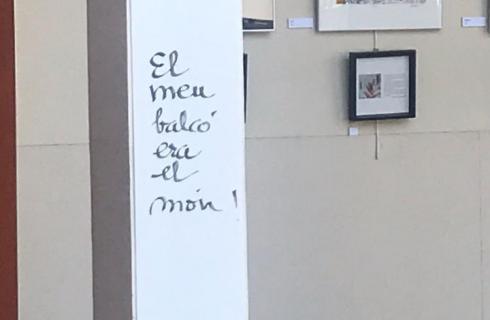 El
meu
balcó
era
el
món!